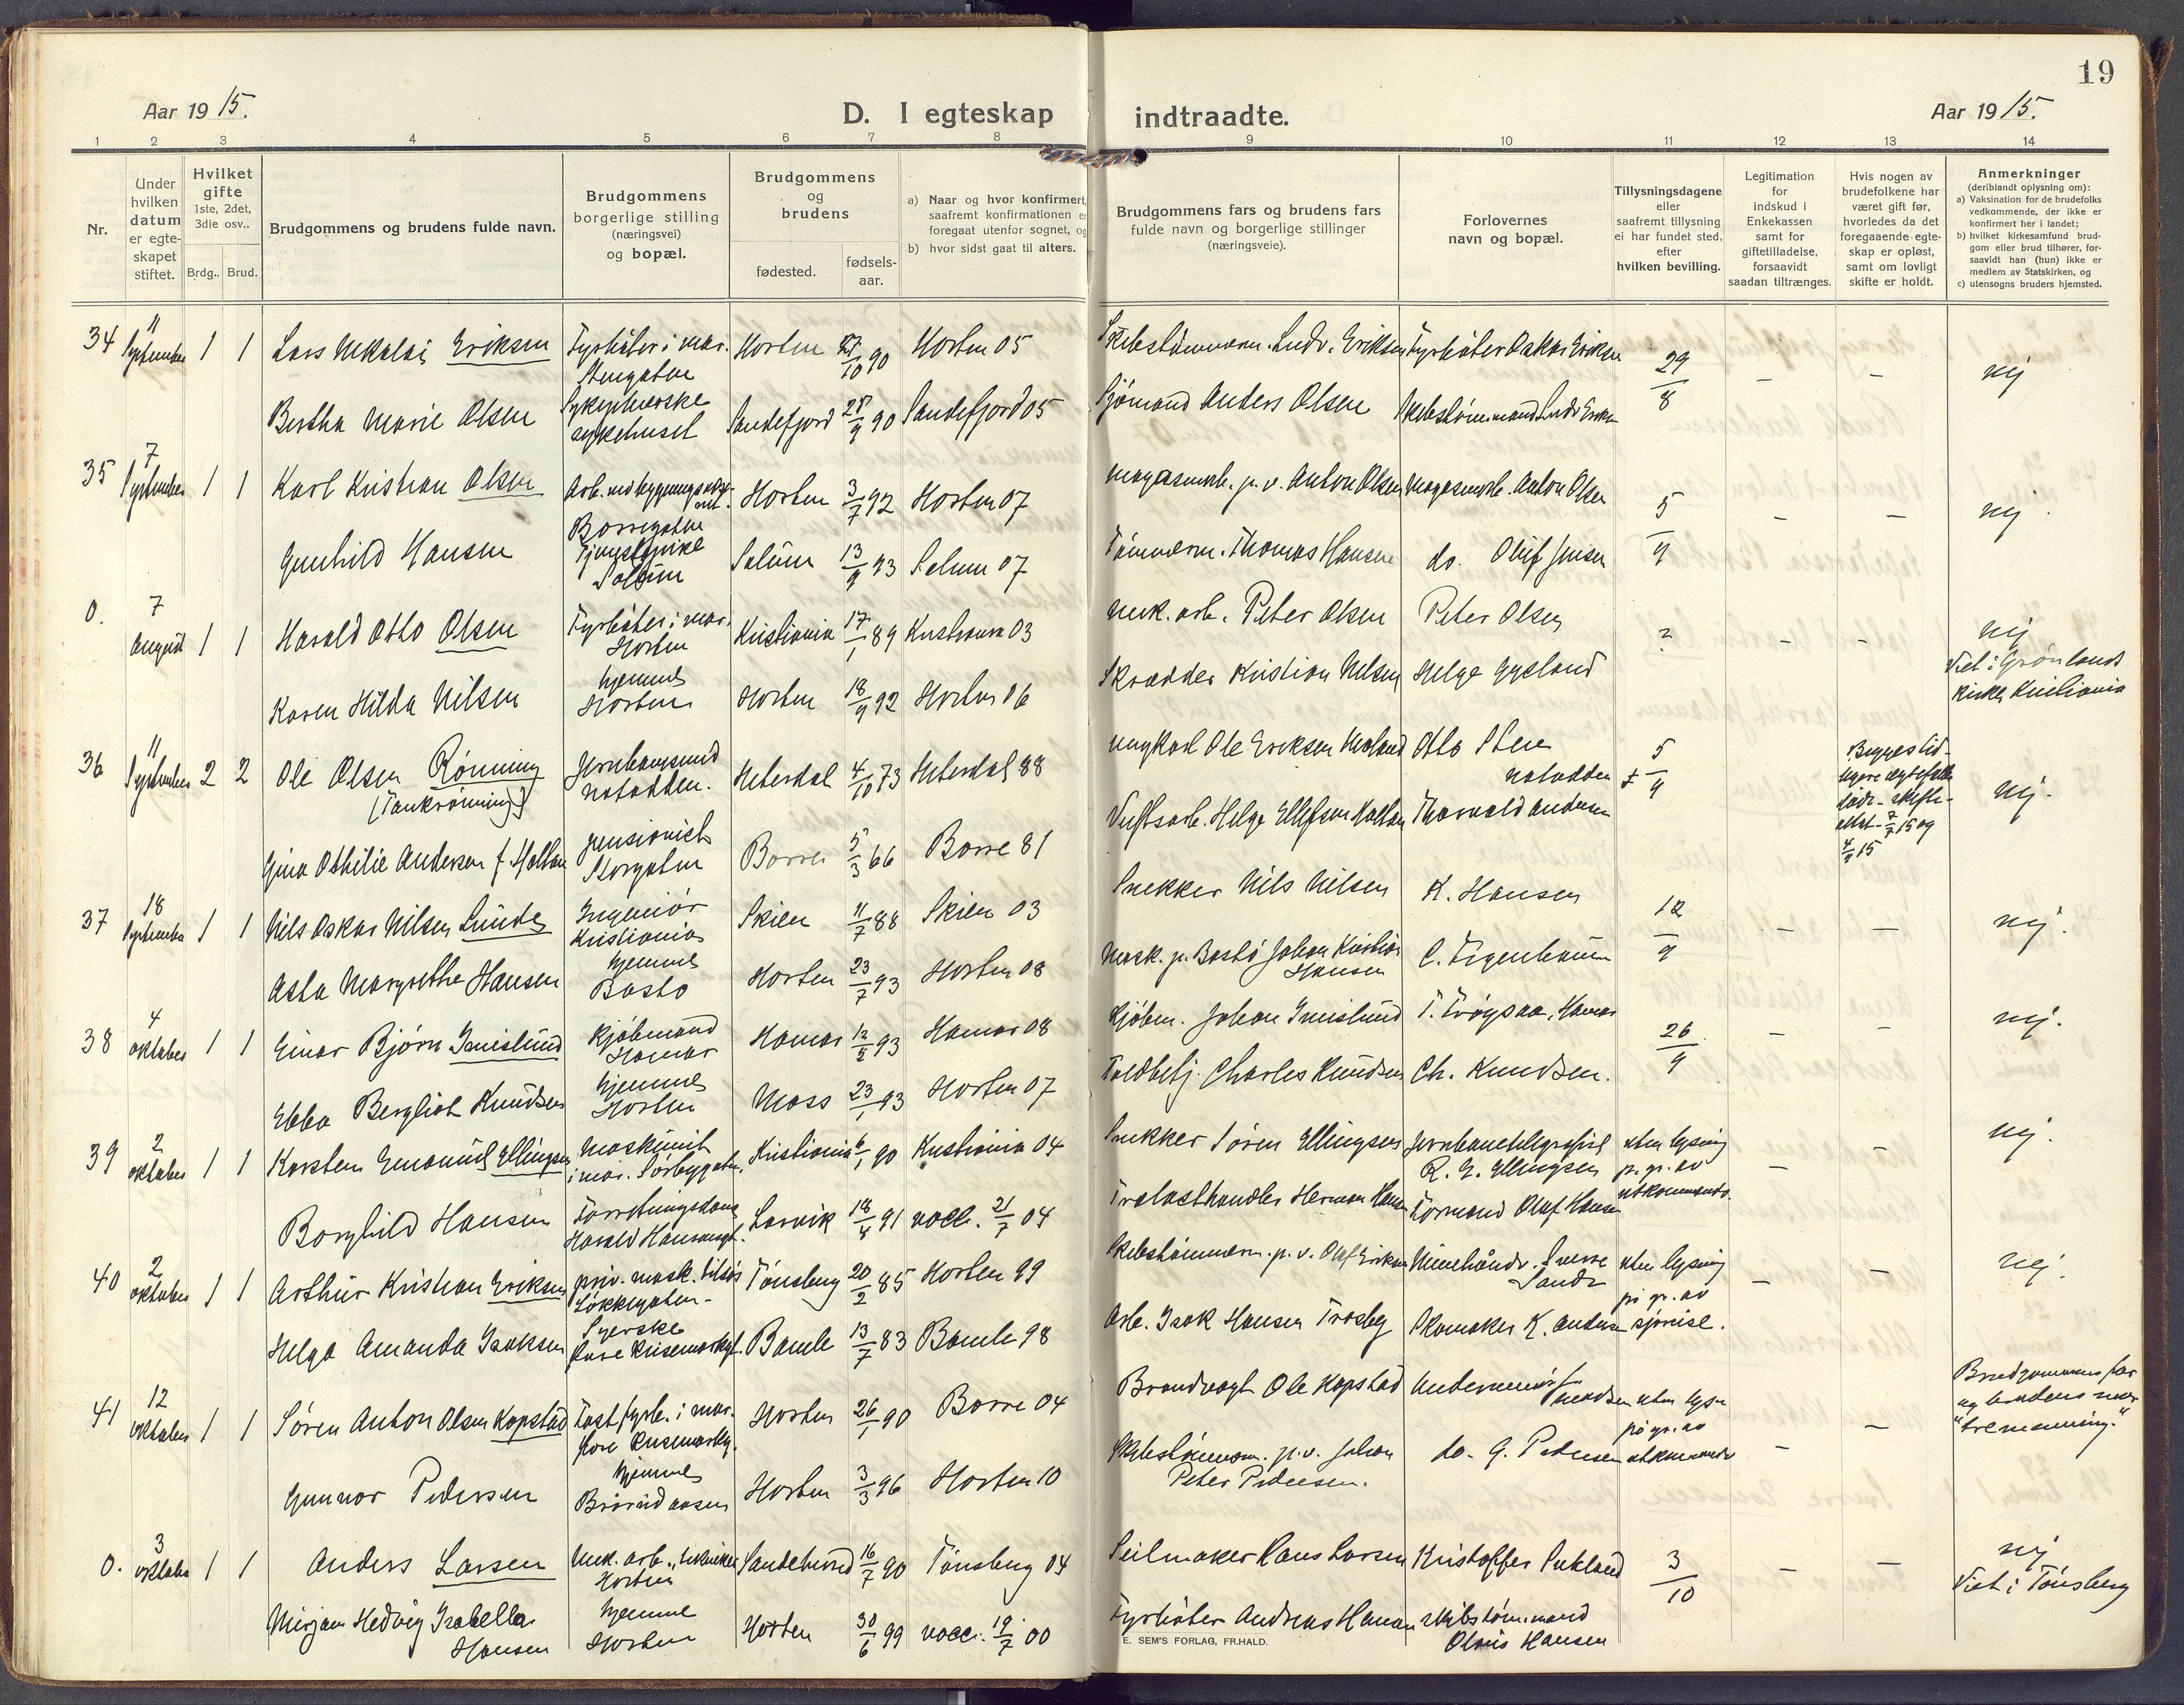 19
Aar 19 15.
D. I egteskap indtraadte.
Aar 19 15.
1 2 3 4 5 6 7 8 9 10 11 12 13 14
Nr.
Under
hvilken
datum
er egte-
skapet
stiftet.
Hvilket
gifte
1ste, 2det,
3die osv..
Brdg.. Brud.
Brudgommens og brudens fulde navn.
Brudgommens
borgerlige stilling
(næringsvei)
og bopæl.
Brudgommens
og
brudens
fødested.
fødsels-
aar.
a) Naar og hvor konfirmert,
saafremt konfirmationen
foregaat utenfor sognet,
b) hvor sidst gaat til alters.
Brudgommens fars og brudens fars
fulde navn og borgerlige stillinger
(næringsveie).
Forlovernes
navn og bopæl.
Tillysningsdagene
eller
saafremt tillysning
ei har fundet sted,
efter
hvilken bevilling.
Legitimation
for
indskud i
Enkekassen
samt for
giftetilladelse,
forsaavidt
saadan tiltrænges.
Hvis nogen av
brudefolkene har
været gift før,
hvorledes da det
foregaaende egte-
skap er opløst,
samt om lovligt
skifte er holdt.
Anmerkninger
(deriblandt oplysning om):
a) Vaksination for de brudefolks
vedkommende, der ikke er
konfirmert her i landet;
b) hvilket kirkesamfund brud-
gom eller brud tilhører, for-
saavidt han (hun) ikke er
medlem av Statskirken, og
c) utensogns bruders hjemsted.
34 11 September 1 1 Lars Nikolai Eriksen Fyrbøter i mar. Stengaten Horten 27/10 90 Horten 05 Skibstømmerm. Ludv. Eriksen Fyrbøter Oskar Eriksen 29/8 - - nej
Bertha Marie Olsen Sykepleierske sykehuset Sandefjord 28/9 90 Sandefjord 05 Sjømand Anders Olsen Skibstømmermand Ludv Eriksen
35 7 September 1 1 Karl Kristian Olsen Horten 3/7 92 Horten 07 Magasinarb. p. v. Anton Olsen Magasinarb. Anton Olsen 5/9 - - nej.
Borregaten
Gunhild Hansen Tjenestepike Solum Solum 13/9 93 Solum 07 Tømmerm. Thomas Hansen do. Oluf Jensen
0. 7 August 1 1 Harald Otto Olsen Fyrbøter i mar. Horten Kristiania 17/1 89 Kristiania 03 Mek. arb. Peter Olsen Peter Olsen ? - - nej
Viet i Grønlands
kirke Kristiania
Karen Hilda Nilsen hjemme Horten Horten 18/9 92 Horten 06 Skrædder Kristian Nilsen Helge
36 11 September 2 2 Ole Olsen Rønning Notodden. Heterdal 4/10 73 Heterdal 88 Ungkarl Ole Eriksen Otto Steen Notodden 5/9 nej.
Gina Othilie Andersen f. Holtan pensionist Storgaten Borre 5/3 66 Borre 81 Verftsarb. Helge Ellefsen Holtan Thorvald Andersen
37 18 September 1 1 Nils Oskar Nilsen Lunde Ingeniør Kristiania Skien 11/7 88 Skien 03 Snekker Nils Nilsen K. Hansen 12/9 - - nej.
Asta Margrethe Hansen hjemme Bastø Horten 23/7 93 Horten 08 Mask. p. Bastø Johan Kristian Hansen C. Figenbaum
38 4 oktober 1 1 Einar Bjørn Imislund Kjøbmand Hamar Hamar 12/2 93 Hamar 08 Kjøbm. Johan Imislund 26/9 - - nej.
Ebba Bergliot Knudsen hjemme Horten Moss 23/1 93 Horten 07 Toldbetj. Charles Knudsen Ch. Knudsen.
39 2 oktober 1 1 Karsten Emanuel Ellingsen Maskinist i mar. Sørbygaten. Kristiania 6/1 90 Kristiania 04 Snekker Søren Ellingsen Jernbanetelegrafist R. E. Ellingsen uten lysning p. gr. av - - nej.
Borghild Hansen Forretningsdame Larvik 18/4 91 vacc. 21/7 04 Trælasthandler Herman Hansen Formand Olaf Hansen
40 2 oktober 1 1 Arthur Kristian Eriksen priv. mask. tilsjøs Løkkegaten - Tønsberg 20/2 85 Horten 99 Skibstømmerm. p. v. Olaf Eriksen Minehåndv. Sverre Sande uten lysning på gr. av sjøreise. - - nej.
Helga Amanda Isaksen Syerske Bamle 13/7 83 Bamle 98 Arb. Isak Hansen Trosby Skomaker K. Andersen
41 12 oktober 1 1 Søren Anton Olsen Kopstad Fast fyrb. i mar. Horten 26/1 90 Borre 04 Brandvagt Ole Kopstad uten lysn. på gr. av - - Brudgommens far
og brudens mor
"tremenning."
Gunnor Pedersen hjemme Horten 3/3 96 Horten 10 Skibstømmerm. p. v. Johan Peter Pedersen. do. G. Pedersen
0. 3 oktober 1 1 Anders Larsen Mek. arb., tekniker Horten Sandeherred 16/7 90 Tønsberg 04 Seilmaker Hans Larsen Kristoffer 3/10 - - nej
Viet i Tønsberg
Mirjam Hedvig Isabella Hansen hjemme Horten Horten 30/6 99 vacc. 19/7 00 Fyrbøter Andreas Hansen skibstømmermand Olaus Hansen
E. SEM'S FORLAG, FR.HALD.